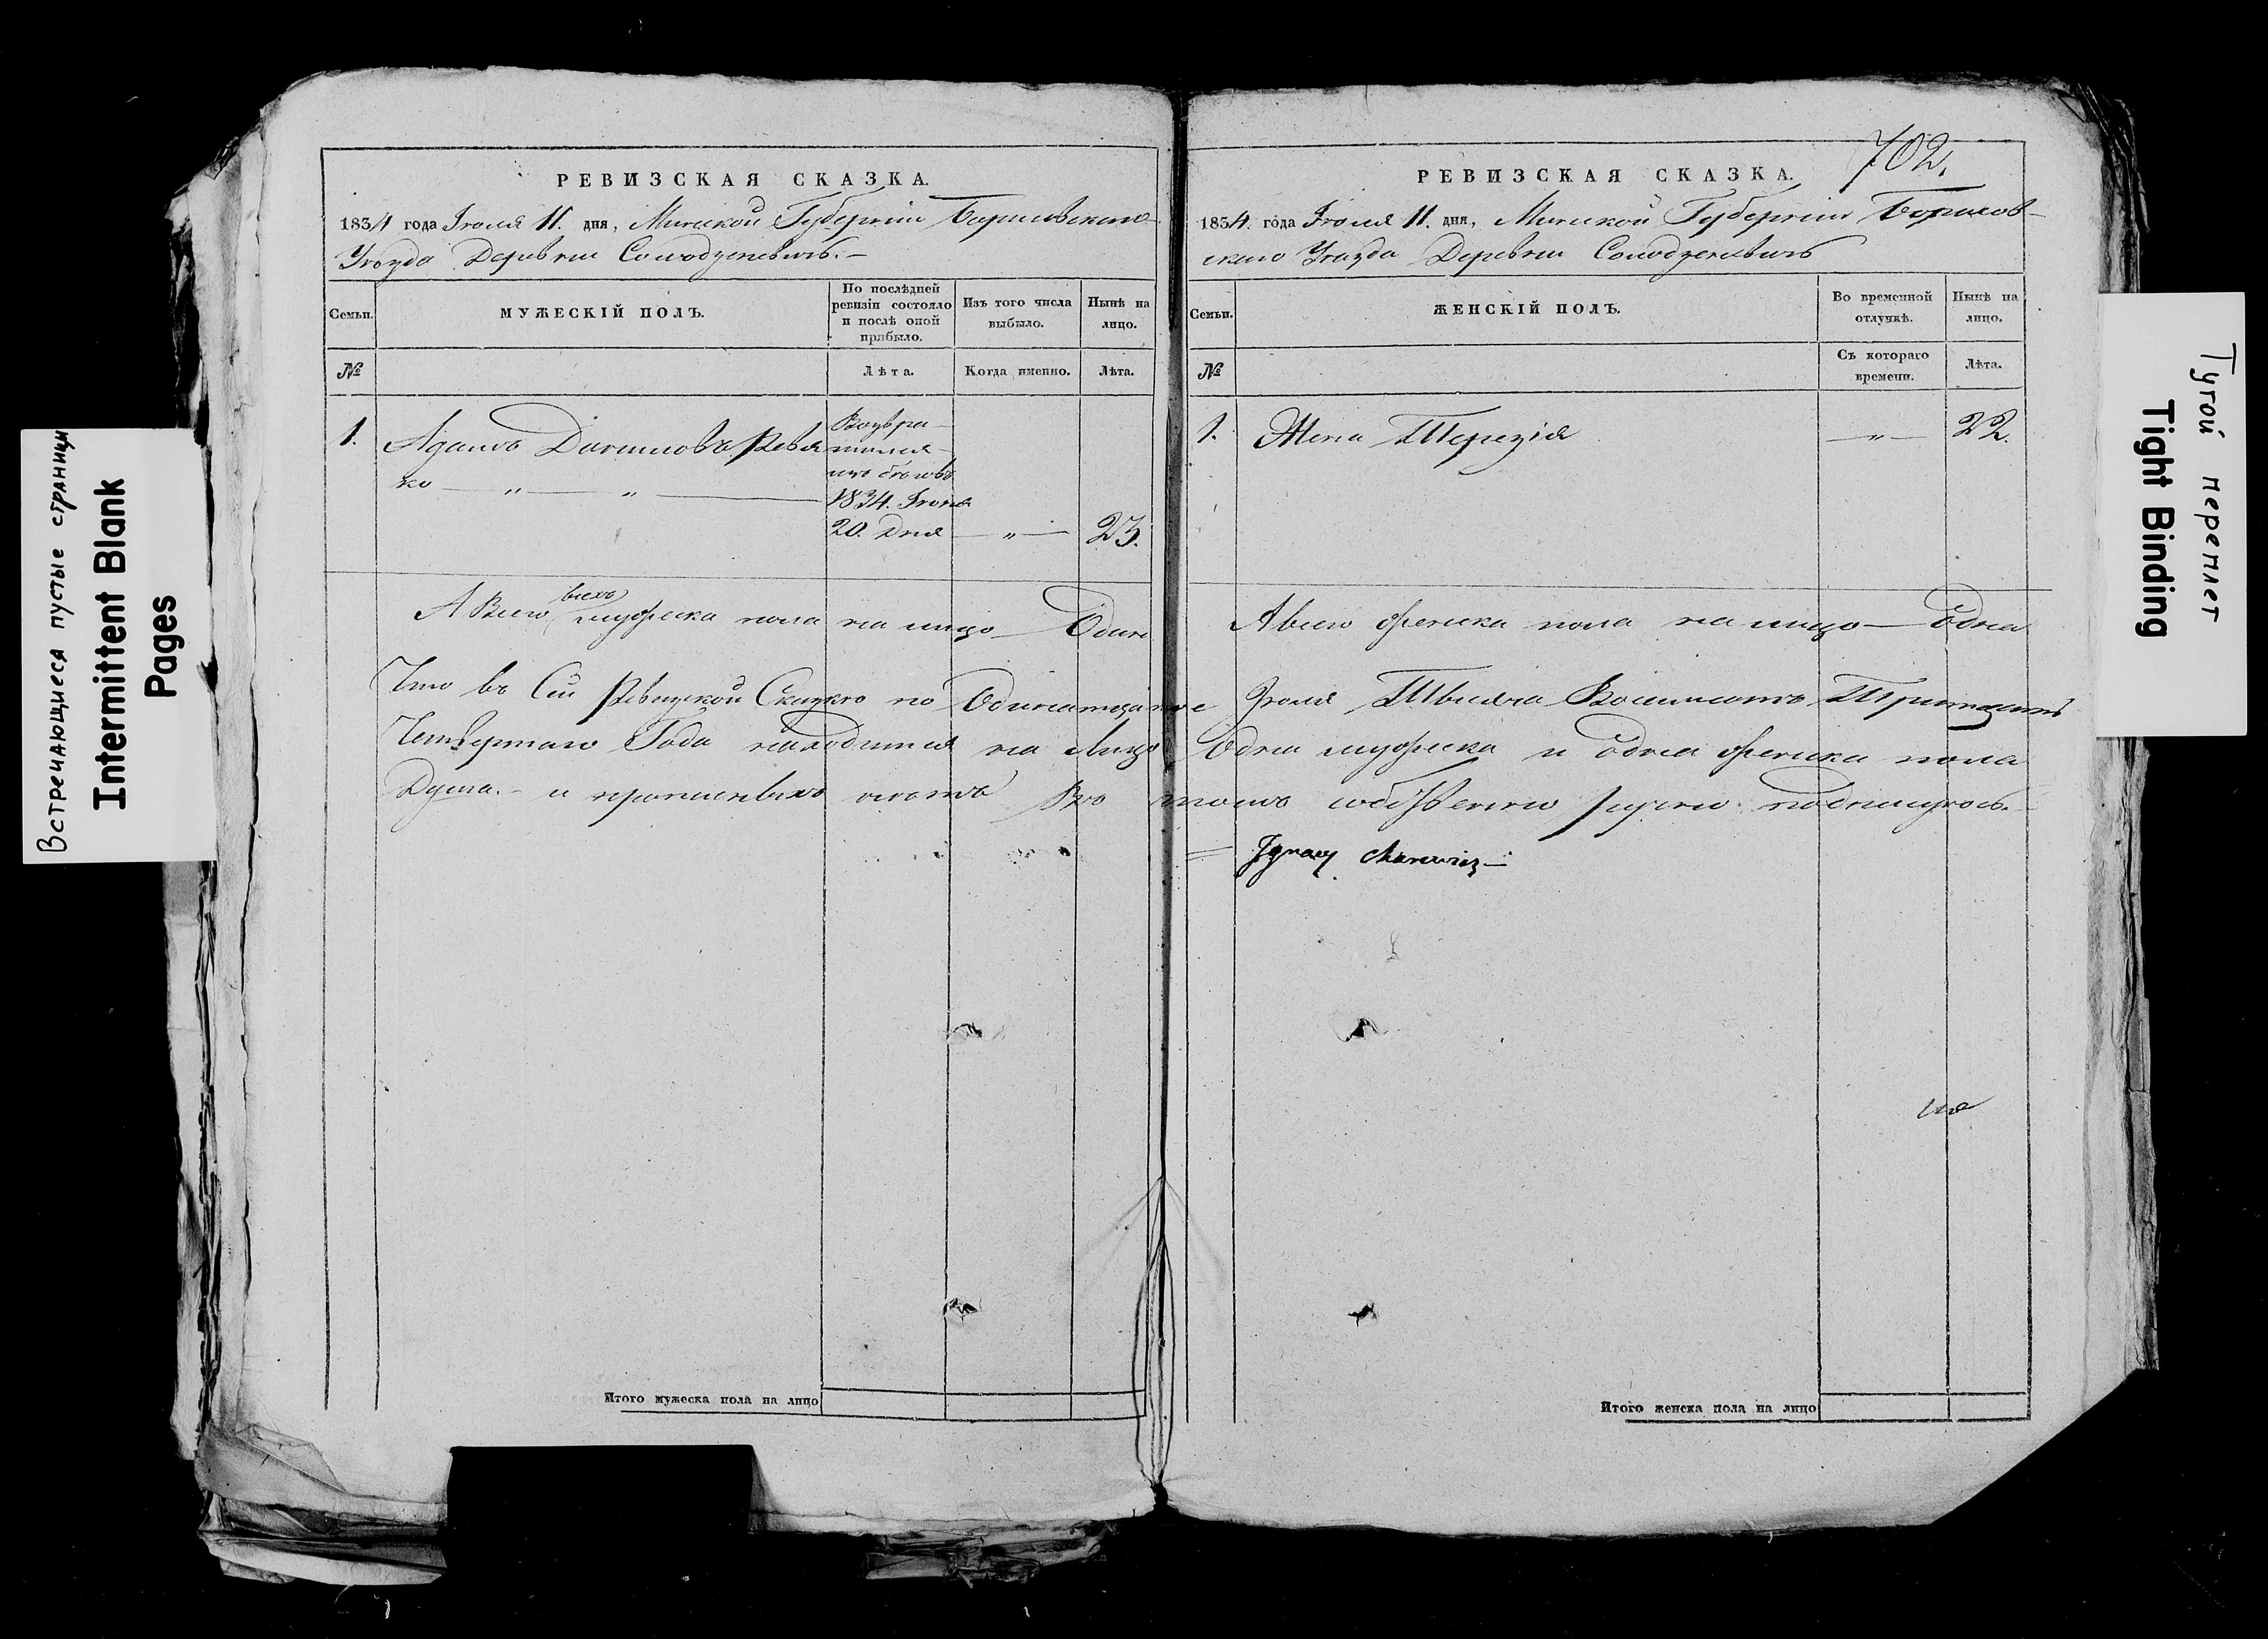 Встречающиеся пустые страницы
Intermittent Blank
Pages
РЕВИЗСКАЯ СКАЗКА.
1834 года Іюля 11. дня, Минской Губерніи Борисовскаго
Уѣзда Деревни Солодзеневичъ.—
Семьи.
МУЖЕСКІЙ ПОЛЪ.
По послѣдней
ревизіи состояло
и послѣ оной
прибыло.
Изъ того числа
выбыло.
Нынѣ на
лицо.
№
Лѣта.
Когда именно.
Лѣта.
1.
Адамъ Даниловъ Ревя
ко — „ — „ —
Возвра-
тился
изъ бѣговъ
1834. Іюня
20. Дня
— „ —
23.
А Всего всехъ мужеска пола на лицо — Одинъ
РЕВИЗСКАЯ СКАЗКА.
702.
1834. года Іюля 11. дня, Минской Губерніи Борисов-
скаго Уѣзда Деревни Солодзеневичъ
Семьи.
ЖЕНСКІЙ ПОЛЪ.
Во временной
отлучкѣ.
Нынѣ на
лицо.
№
Съ котораго
времени.
Лѣта.
1.
Жена Терезія
— „ —
22.
А всего женска пола на лицо — Одна
Что въ Сей Ревизской Сказкѣ по Одинатцатое Іюля Тысяча Восимсотъ Тритцать
Четвертаго Года находится на Лицо Одна мужеска и Одна женска пола
Душа.- и прописныхъ нѣтъ въ томъ собственноручно подпишуюсь.
Ignacy
Итого мужеска пола на лицо
Итого женска пола на лицо
Тугой переплет
Tight Binding